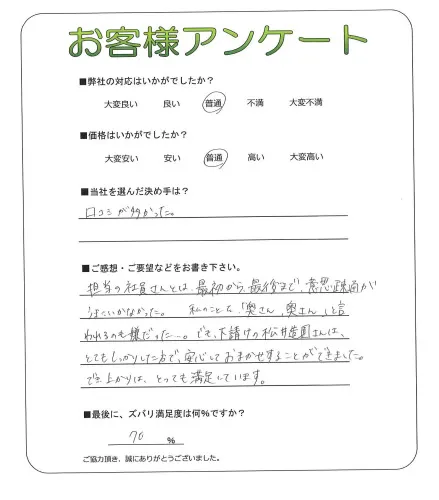 お客様アンケート
■弊社の対応はいかがでしたか?
大変良い 良い 普通 不満 大変不満
■価格はいかがでしたか?
大変安い 安い 普通 高い 大変高い
■当社を選んだ決め手は?
口コミが多かった。
■ご感想・ご要望などをお書き下さい。
担当の社員さんとは、最初から、最後まで、意思疎通が
うまくいかなかった。 私のことを、「奥さん、奥さん」と言
われるのも嫌だった…。でも、下請けの松井造園さんは、
とてもしっかりした方で、安心しておまかせすることができました。
でき上がりは、とっても満足しています。
■最後に、ズバリ満足度は何%ですか?
70 %
ご協力頂き、誠にありがとうございました。